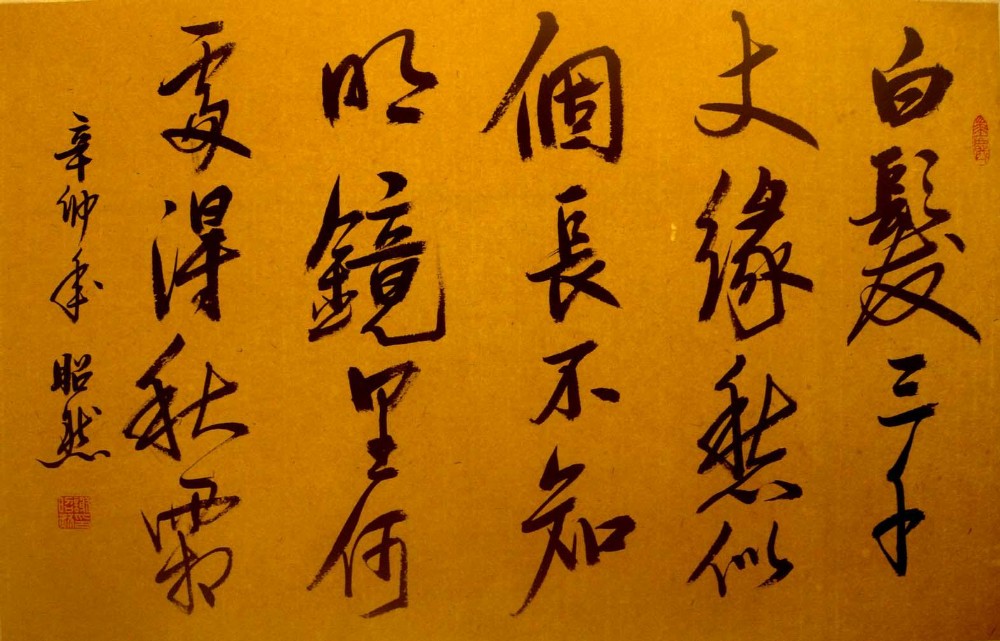 白髮三千
丈緣愁似
個長不知
明鏡里何
處得秋霜
辛卯年 昭然